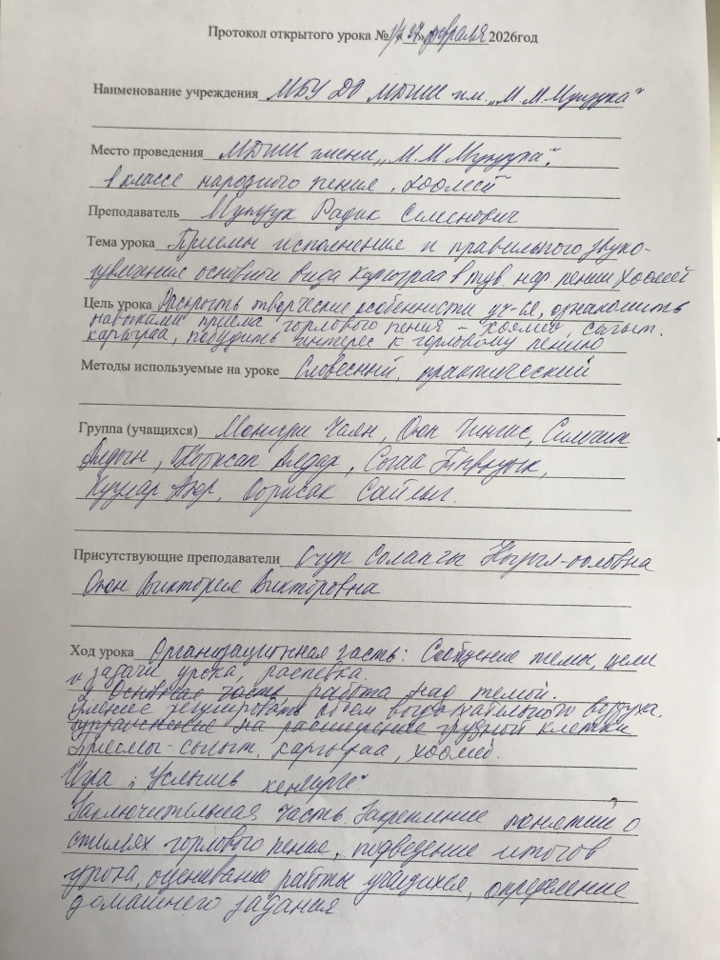 Протокол открытого урока № февраля 2026год
Наименование учреждения МБУ ДО МДШИ им. „М.М.Мунзука"
Место проведения МДШИ имени „М.М Мунзука".
в классе народного пения „Хоомей
Преподаватель Мунзук Радик Семенович
Тема урока Приемы исполнения и правильного звуко-
основного вида Каргыраа в тув. нар. пении Хоомей
Цель урока Раскрыть творческие особенности уч-ся, ознакомить
навыками приема горлового пения - хоомей, сыгыт.
каргыраа, пробудить интерес к горловому пению
Методы используемые на уроке Словесный, практический
Группа (учащихся) Монгуш Чаян, Оюн Чингис,
Ооржак Алдар,
Куулар Ооржак
Присутствующие преподаватели Очур Солангы
Оюн Виктория Викторовна
Ход урока Организационная часть: Сообщение темы, цели
и задачи урока, распевка.
Основная часть работа над темой.
регулировать объем воздуха.
упражнение на расширение грудной клетки
Приемы - сыгыт, каргыраа, хоомей.
Игра „Услышь
Заключительная часть Закрепление понятий о
стилях горлового пение, подведение итогов
урока, оценивание работы учащихся, определение
домашнего задания